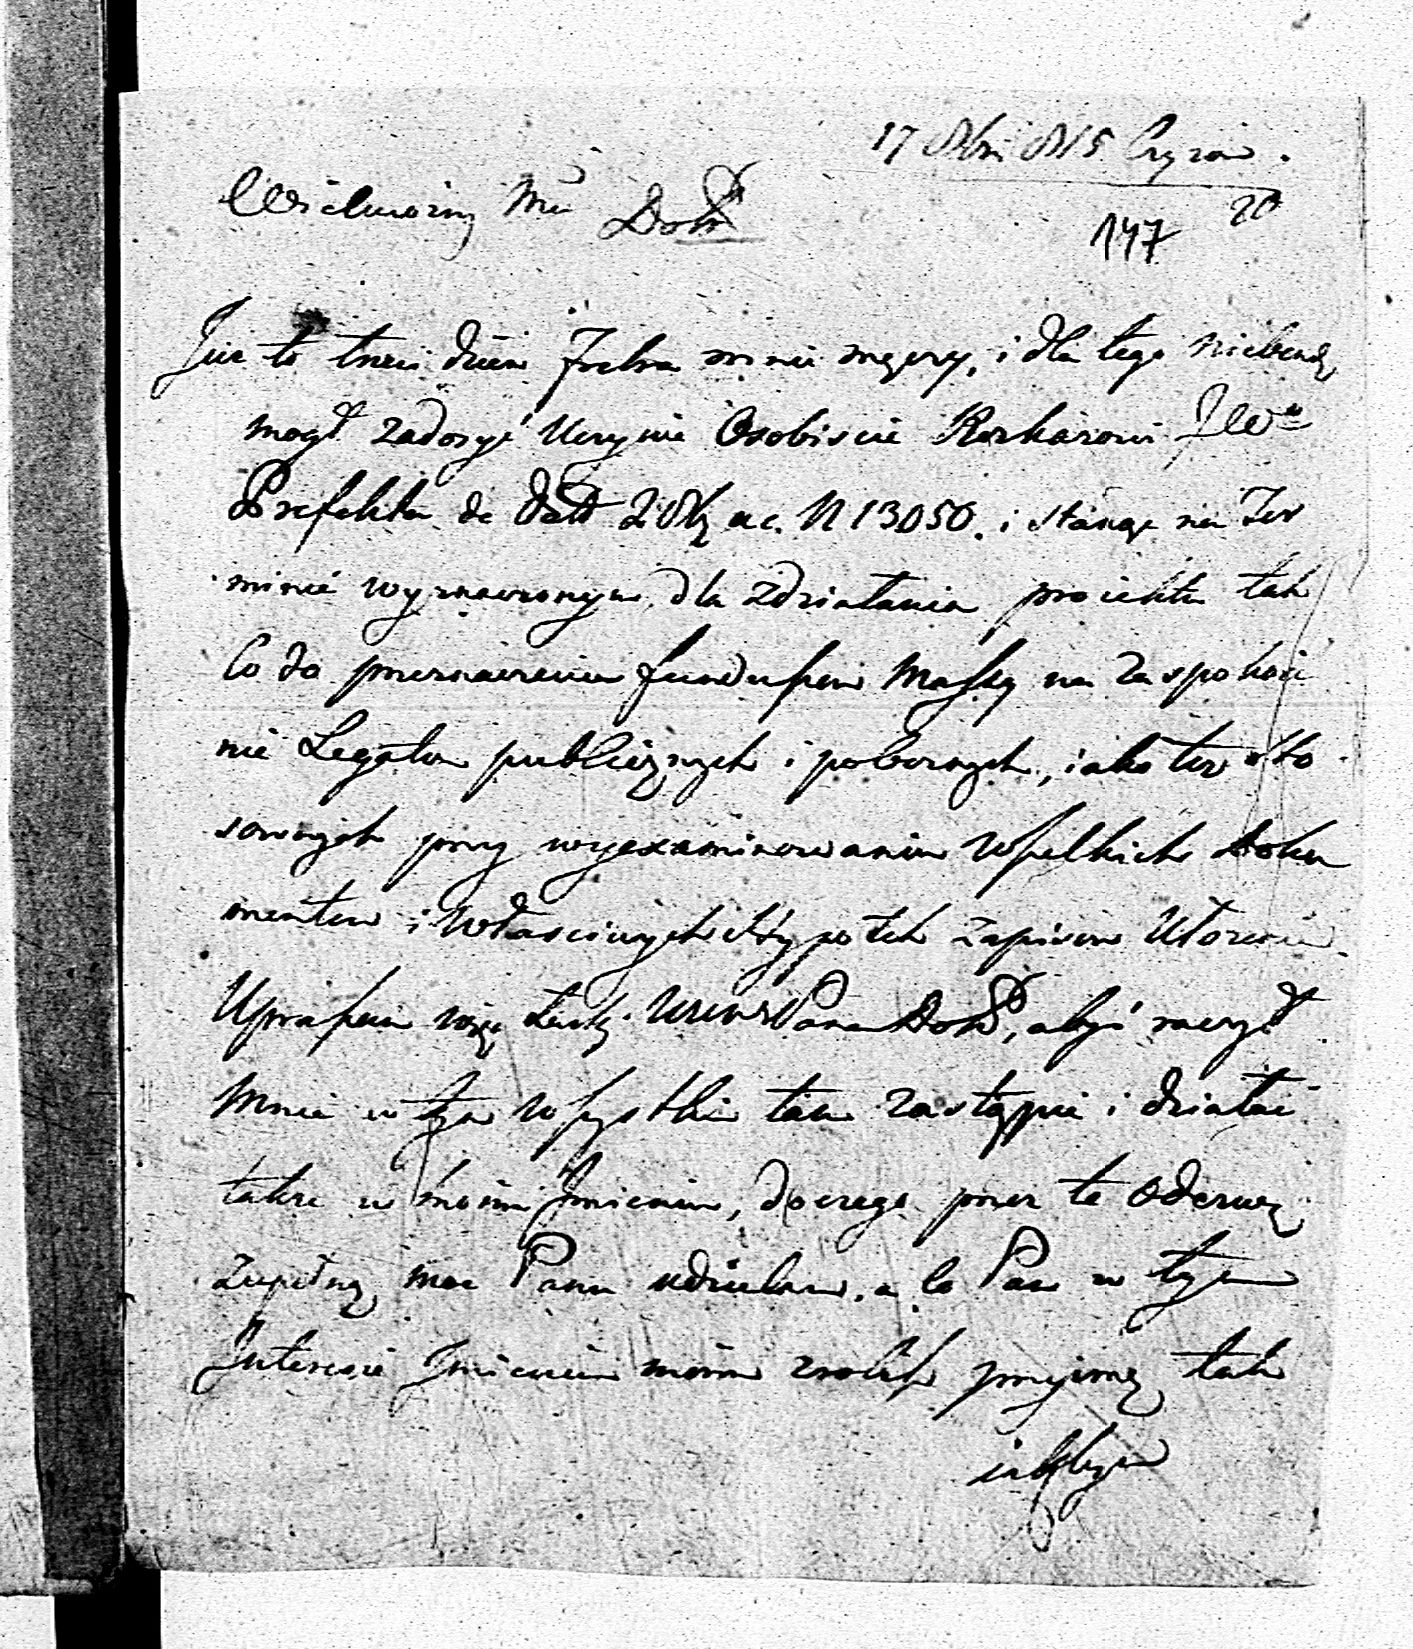 17 8bri 815 Czyżow.
20
147
Wielmożny Mci Dobr
Juz to trzeci dzien Febra mnie męczy, i dla tego niebendę
mogł zadosyć Uczynić Osobiscie Rozkazowi JW
Prefekta de Dato 2 8br a c. N 13050. i stanąc na Ter
minie wyznaczonym, dla zdziałania proiektu tak
Co do przeznaczenia funduszów Massy na zaspokoie
nie Legatow publicznych i pobożnych, iako też sto
sownych przy wyexaminowaniu wszelkich Doku
mentow i właściwych Hypotek zapisow Ułożenia
Upraszam więc Łaski WWPana Dobr, abyś raczył
Mnie w tem wszystkim tam zastąpić i działać
także w moim Imieniu, do czego przez te Oderwę
zupełną moc Panu udzielam, a co Pan w tym
Interesie Imieniem moim zrobisz przyimę tak
iak bym